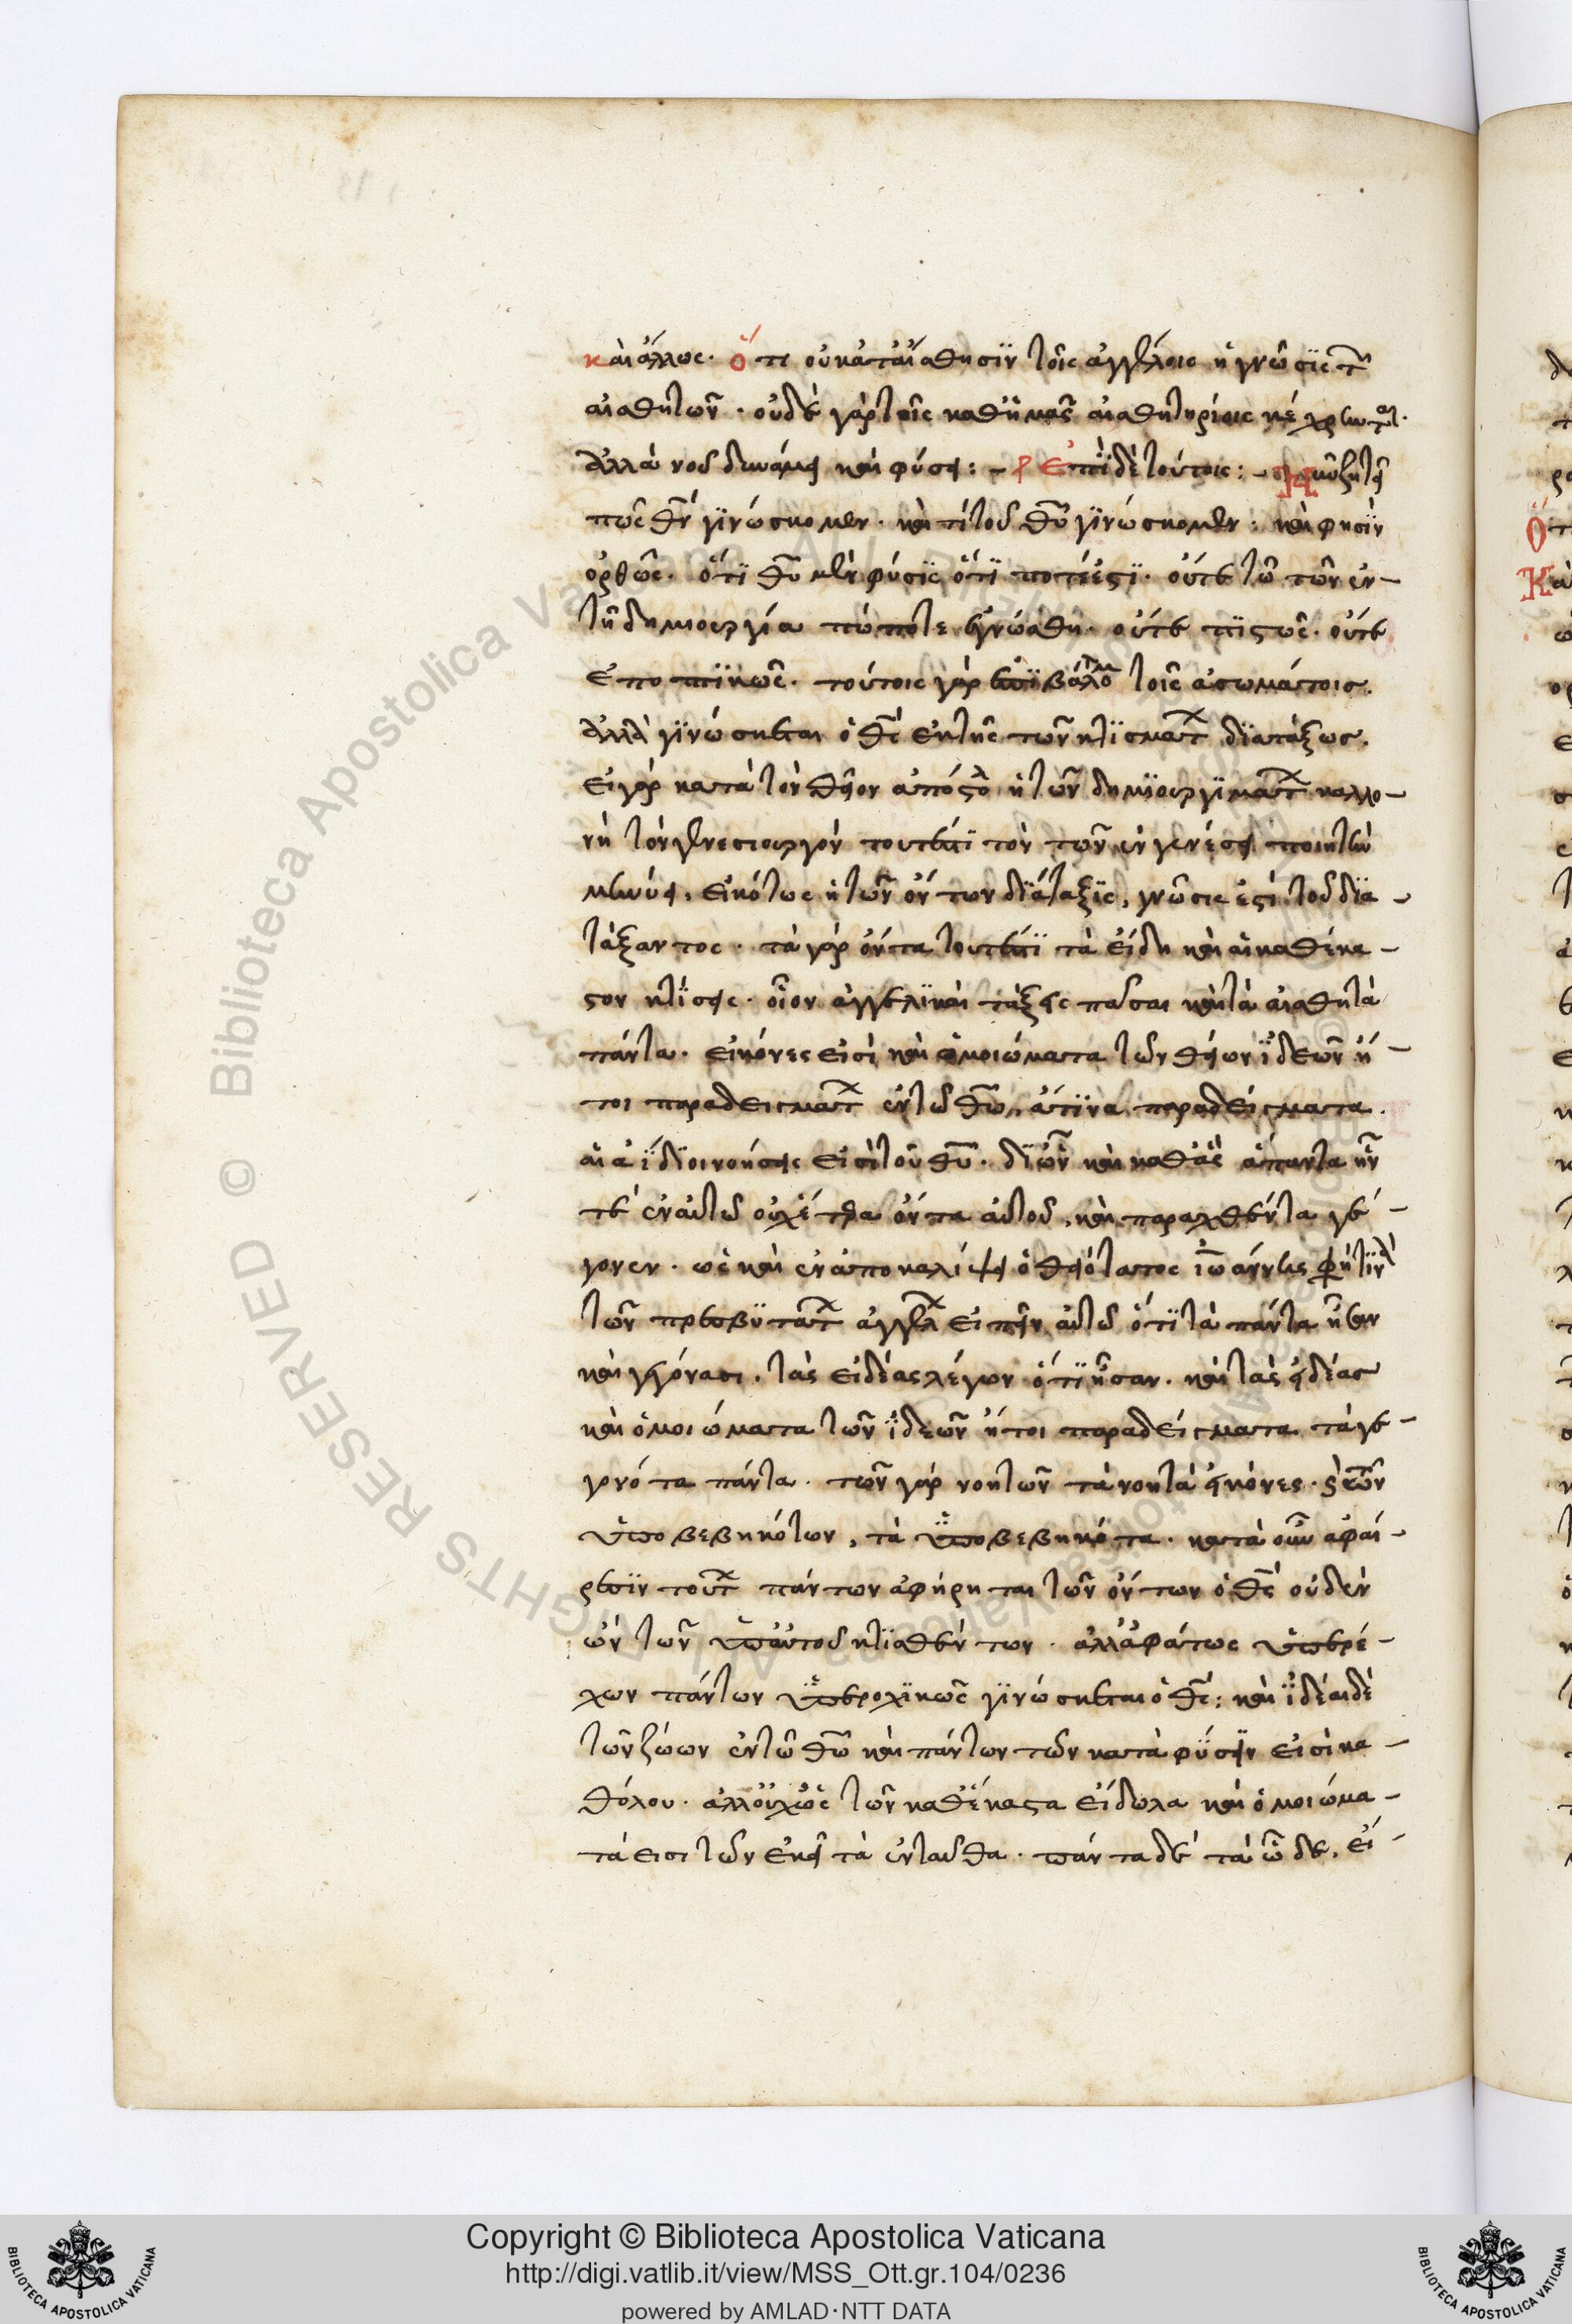 καὶ ἄλλως. ὅτι οὐ κατ' αἴσθησϊν τοῖς ἀγγέλοις ἡ γνῶσϊς τῶν
αἰσθητῶν. οὐδὲ γὰρ τοῖς καθ' ἡμᾶς αἰσθητηρίοις κέχρωνται.
ἀλλὰ νοῦ δυνάμει καὶ φύσει: – Ἐπὶ δὲ τούτοις: – ζητεῖ
πῶς θν γϊνώσκομεν. καὶ τί τοῦ θυ γϊνώσκομεν: καὶ φησὶν
ὀρθῶς. ὅτϊ θυ μὲν φύσϊς ὅτϊ ποτέ ἐστϊ. οὔτε τῶν ἐν
τῇ δημιουργία πώποτε ἐγνώσθη. οὔτε πϊστῶς. οὔτε
ἐποπτϊκῶς. τούτοις γὰρ ἐπϊβάλλομεν τοῖς ἀσωμάτοις.
ἀλλὰ γϊνώσκεται ὁ θς ἐκ τῆς τῶν κτϊσμάτων δϊατάξεως.
εἰ γὰρ κατὰ τὸν θεῖον ἀπόστολον ἡ τῶν δημϊουργϊμάτων καλλο
νὴ τὸν γενεσιουργὸν τουτέστϊ τὸν τῶν ἐν γενέσει ποιητὴν
μηνύει, εἰκότως ἡ τῶν ὄντων δϊάταξϊς, γνῶσις ἐστὶ τοῦ δϊα
τάξαντος. τὰ γὰρ ὄντα τουτέστϊ τὰ εἴδη καὶ αἱ καθέκα
στον κτΐσεις. οἷον ἀγγελϊκαὶ τάξεις πᾶσαι καὶ τὰ αἰσθητὰ
πάντα. εἰκόνες εἰσὶ καὶ ὁμοιώματα τῶν θείων ϊδεῶν ἤ
τοι παραδειγμάτων ἐν τῶ θω, ἅτϊνα παραδείγματα
αἱ ἀΐδϊοι νοήσεις εἰσὶ τοῦ θυ. δϊ ὧν καὶ καθ' ἃς ἅπαντα ἦν
τὲ ἐν αὐτῶ οὐχ ἕτερα ὄντα αὐτοῦ, καὶ παραχθέντα γέ
γονεν. ὡς καὶ ἐν ἀποκαλύψει ὁ θειότατος ἰωάννης φησὶ τϊνὰ
τῶν πρεσβϋτάτων ἀγγέλων εἰπεῖν αὐτῶ ὅτϊ τὰ πάντα ἦσαν
καὶ γεγόνασι. τὰς εἰδέας λέγων ὅτϊ ἦσαν. καὶ τὰς εἰδέας
καὶ ὁμοιώματα τῶν ϊδεῶν ἤτοι παραδείγματα τὰ γε
γονότα πάντα. τῶν γὰρ νοητῶν τὰ νοητὰ εἰκόνες. καὶ τῶν
ὑποβεβηκότων, τὰ ὑποβεβηκότα. κατὰ οὖν ἀφαί
ρεσϊν τούτων πάντων ἀφήρηται τῶν ὄντων ὁ θς οὐδὲν
ὢν τῶν ὑπ' αὐτοῦ κτϊσθέντων. ἀλλ' ἀφάτως ὑπερέ
χων πάντων ὑπεροχϊκῶς γϊνώσκεται ὁ θς: καὶ ϊδέαι δὲ
τῶν ζώων ἐν τῶ θω καὶ πάντων τῶν κατὰ φύσϊν εἰσὶ κα
θόλου. ἀλλ' οὐχ ὡς τῶν καθέκαστα εἴδωλα καὶ ὁμοιώμα
τά εισι τῶν ἐκεῖ τὰ ἐνταῦθα. πάντα δὲ τὰ ὧδε, εἰ
Copyright © Biblioteca Apostolica Vaticana
http://digi.vatlib.it/view/MSS_Ott.gr.104/0236
powered by AMLAD·NTT DATA